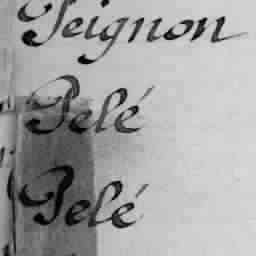 Peignon
Pelé
Pelé